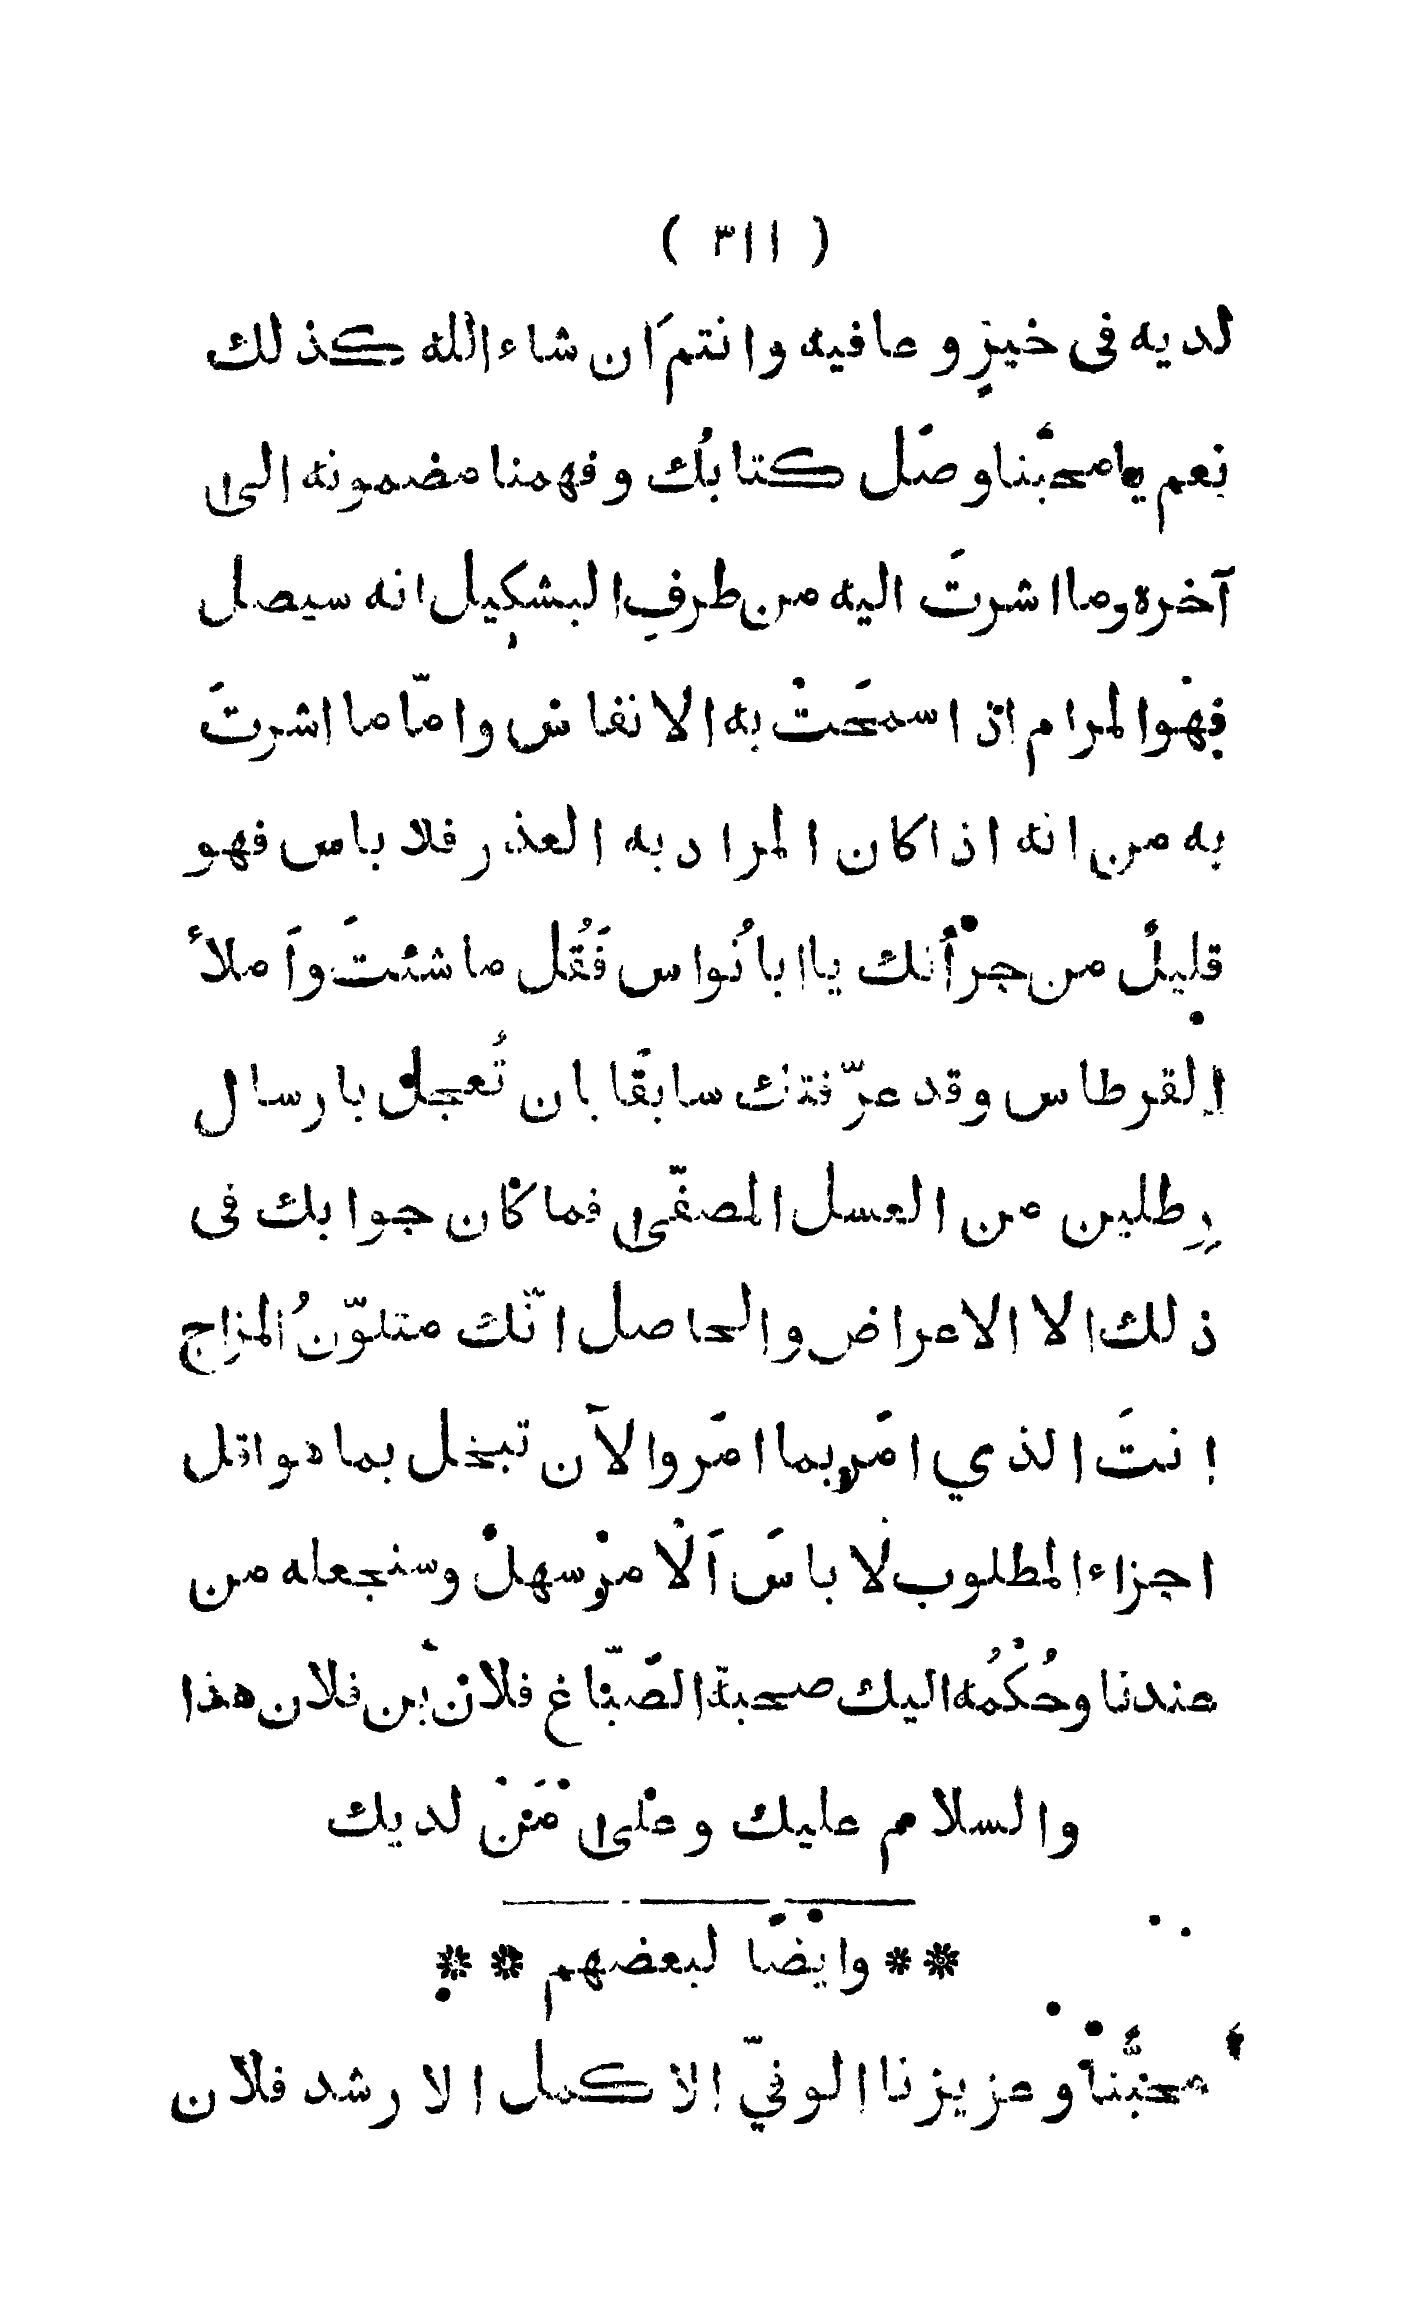 ( ٣١١ )
لديه فى خيرٍ و عافيه وانتم اَن شاء الله كذلك
نعم يا محبّنا وصَل كتابُك وفهمنا مضمونه الى
آخره وما اشرتَ اليه من طرفِ البشكِيل انه سيصل
فهْو المرام اذ اسمحَتْ به الانفاس وامّا ما اشرتَ
به من انه اذا كان المراد به العذر فلا باس فهو
قليلٌ من جرْأتك يا ابا نُواس فَقُل ما شئتَ وَاملأ
القرطاس وقد عرّفتك سابقًا بان تُعجل بارسال
رِطلين من العسل المصفّى فما كان جوابك فى
ذلك الا الاعراض والحاصل انّك متلوّنُ المزاج
انتَ الذي امَر بما امَر والآن تبخل بما هو اقل
اجزاء المطلوب لا باسَ اَلْامرْ سهلْ وسنجعله من
عندنا وحُكْمُه اليك صحبة الصّبّاغ فلانْ بْن فلان هذا
والسلام عليك وعلى مَنْ لديك
** وايضًا لبعضهم **
محبُّنا وعزيزنا الوفيّ الاكمل الارشد فلان